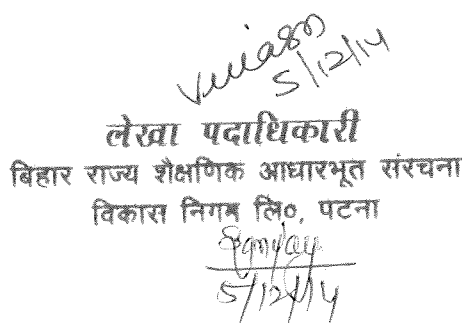 5/12/14
लेखा पदाधिकारी
बिहार राज्य शैक्षणिक आधारभूत संरचना
विकास निगम लि०, पटना
Sanjay
5/12/14